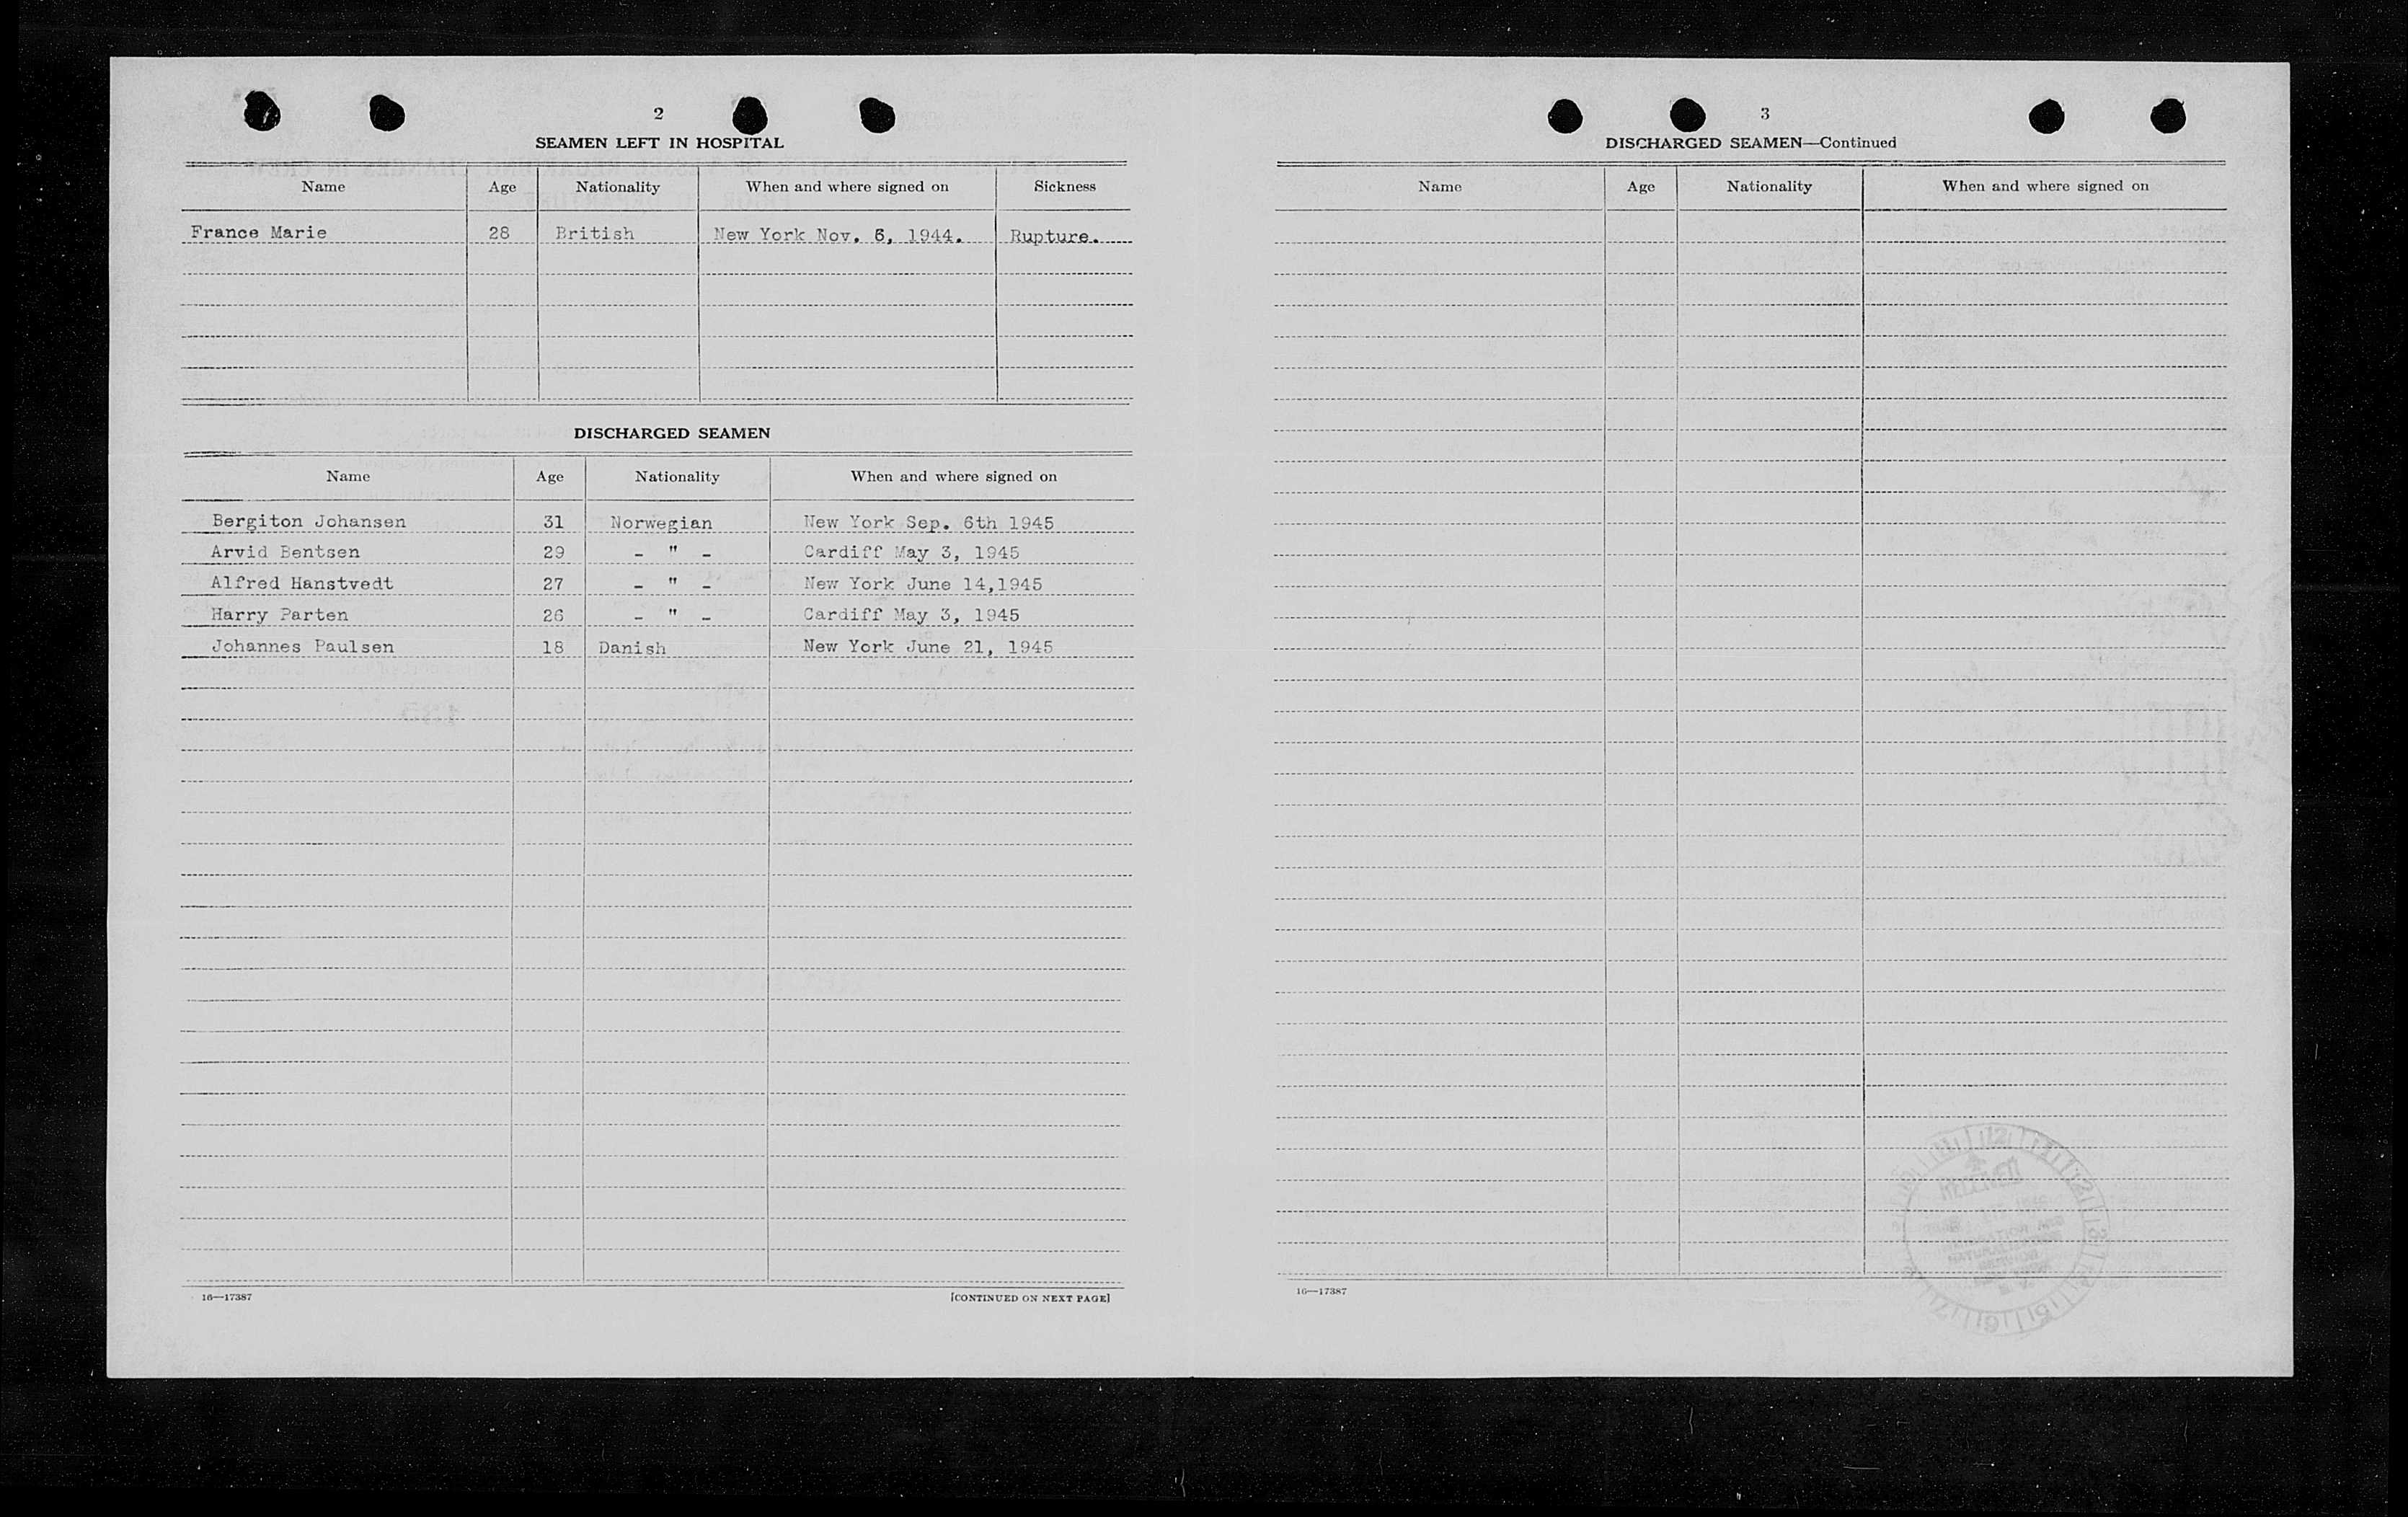 2
SEAMEN LEFT IN HOSPITAL
Name Age Nationality When and where signed on Sickness
France Marie 28 British New York Nov. 6, 1944. Rupture.
DISCHARGED SEAMEN
Name Age Nationality When and where signed on
Bergiton Johansen 31 Norwegian New York Sep. 6th 1945
Arvid Bentsen 29 - " - Cardiff May 3, 1945
Alfred Hanstvedt 27 - " - New York June 14,1945
Harry Parten 26 - " - Cardiff May 3, 1945
Johannes Paulsen 18 Danish New York June 21, 1945
16—17387 [CONTINUED ON NEXT PAGE]
3
DISCHARGED SEAMEN—Continued
Name Age Nationality When and where signed on
RECEIVED
16—17387